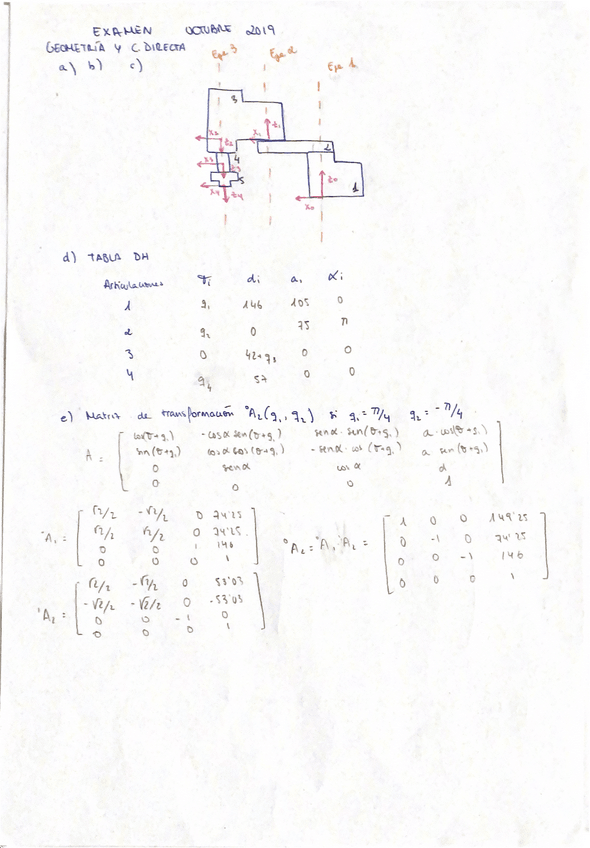 EXAMEN OCTUBRE 2019
GEOMETRÍA Y C. DIRECTA
a) b) c)
Eje 3 Eje 2 Eje 1
3
x2 z2 x1 z1
2
4
x3 z3
5
x4 z4
z0
1
x0
d) TABLA DH
Articulaciones θi di ai αi
1 q1 146 105 0
2 q2 0 75 π
3 0 42+q3 0 0
4 q4 57 0 0
e) Matriz de transformación ⁰A2(q1, q2) si q1 = π/4 q2 = -π/4
A = [ cos(θ+qi) -cosα sen(θ+qi) senα · sen(θ+qi) a · cos(θ+qi)
sin(θ+qi) cosα cos(θ+qi) -senα · cos(θ+qi) a sen(θ+qi)
0 senα cosα d
0 0 0 1 ]
⁰A1 = [ √2/2 -√2/2 0 74'25
√2/2 √2/2 0 74'25
0 0 1 146
0 0 0 1 ]
⁰A2 = ⁰A1 ¹A2 = [ 1 0 0 149'25
0 -1 0 74'25
0 0 -1 146
0 0 0 1 ]
¹A2 = [ √2/2 -√2/2 0 53'03
-√2/2 -√2/2 0 -53'03
0 0 -1 0
0 0 0 1 ]